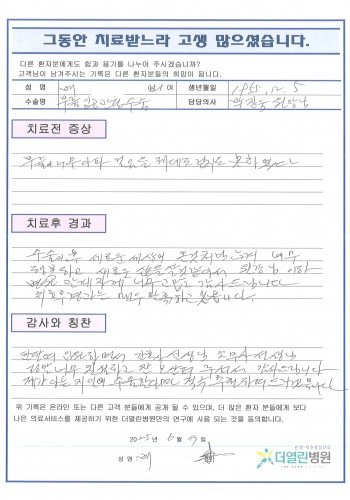 그동안 치료받느라 고생 많으셨습니다.
다른 환자분에게도 힘과 용기를 나누어 주시겠습니까?
고객님이 남겨주시는 기록은 다른 환자분들의 희망이 됩니다.
성 명 생년월일 1955.12.5
수술명 무릎인공관절수술 담당의사 원장님
치료전 증상
무릎이 너무 아파 걸음을 제대로 걷지를 못하였으나
치료후 경과
수술이후 새로운 세상에 온것처럼 너무
행복하고 새로운 원장님 이하
너무 고맙고 감사드립니다
치료후 경과는 매우 만족하고 있읍니다.
감사와 칭찬
간호사 선생님
정말 너무 친절하고 잘 보살펴 주셔서 감사드립니다
제가 아는 지인께 적극 추천
위 기록은 온라인 또는 다른 고객 분들에게 공개 될 수 있으며, 더 많은 환자 분들에게 보다
나은 의료서비스를 제공하기 위한 더열린병원만의 연구에 사용 되는 것을 동의합니다.
2025년 6월 19일
성 명 :
관절·척추중점진료
더열린병원